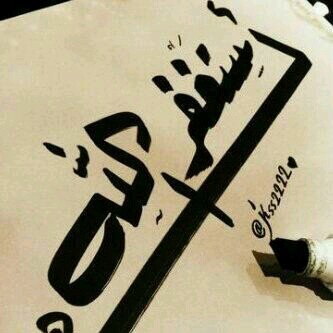 أستغفر الله
@kss2222♥